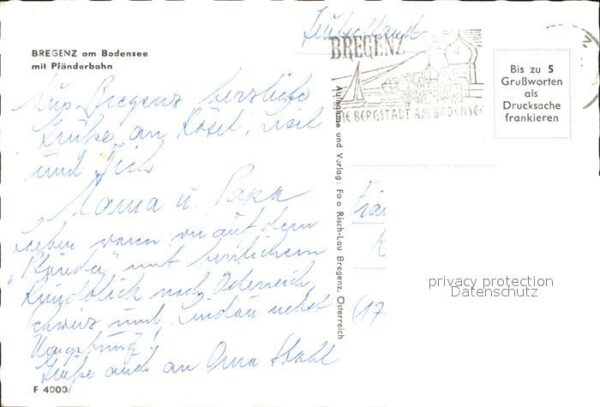 BREGENZ am Bodensee
mit Pfänderbahn
Aus Bregenz herzliche
Grüße an Rösel, 
und Dich
Mama u. Papa
Soeben waren wir auf dem
"Pfänder" mit herrlichem
Rundblick nach Österreich
Schweiz und Lindau nebst
Umgebung!
Grüße auch an Oma Stahl
F 4000
Aufnahme und Verlag: Foto Risch-Lau Bregenz, Österreich
Deutschland
BREGENZ
DIE BERGSTADT AM BODENSEE
Bis zu 5
Grußworten
als
Drucksache
frankieren
(17
privacy protection
Datenschutz